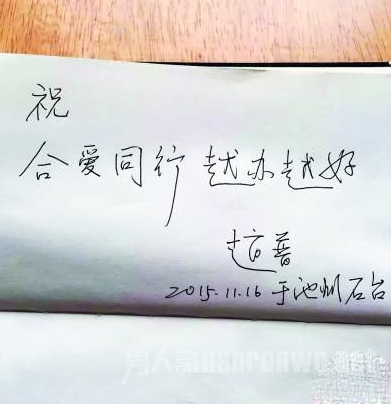 祝
合爱同行 越办越好
赵普
2015.11.16 于池州石台
男人窝nanrenwo.net